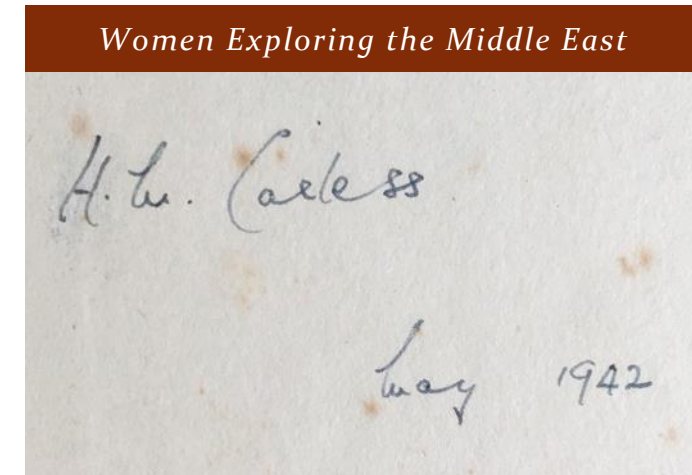 Women Exploring the Middle East
H.M. Carless
May 1942